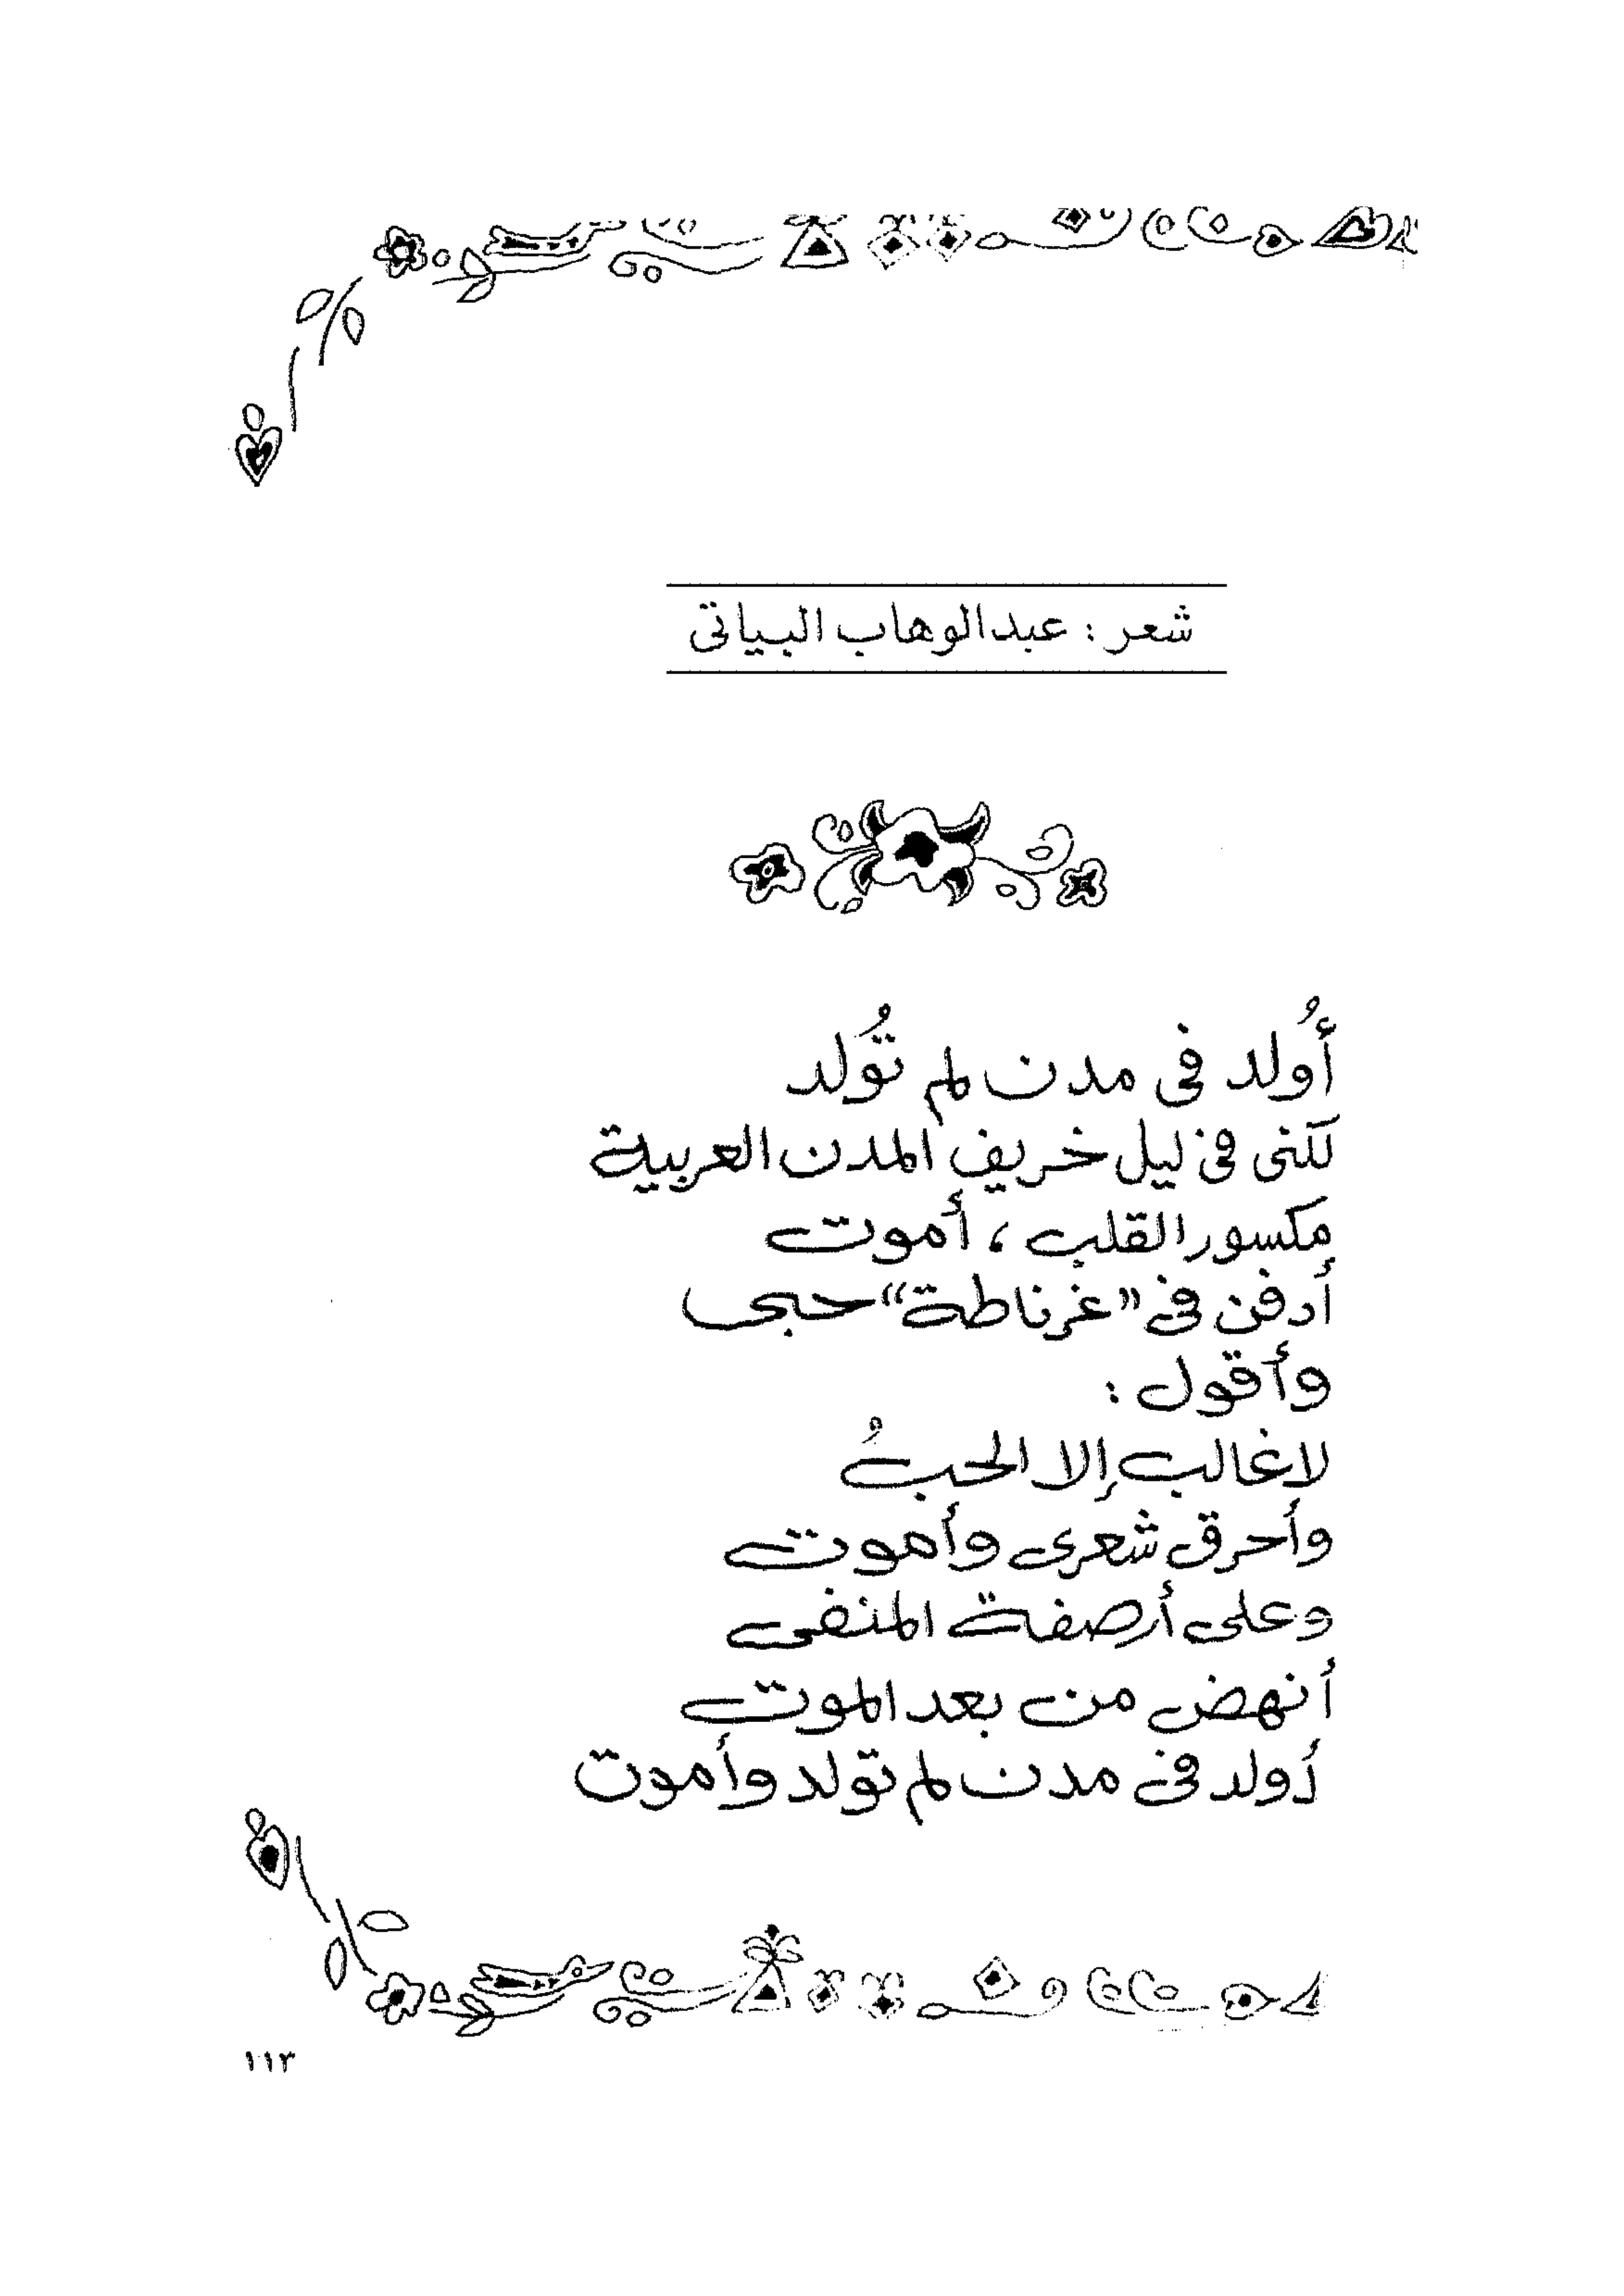 شعر : عبدالوهاب البياتى
أُولد فى مدن لم تُولد
لكنى فى ليل خريف المدن العربية
مكسور القلب ، أموت
أدفن فى "غرناطة" حبى
وأقول :
لا غالب إلا الحبُ
وأحرق شعرى وأموت
وعلى أرصفة المنفى
أنهض من بعد الموت
أولد فى مدن لم تولد وأموت
١١٣